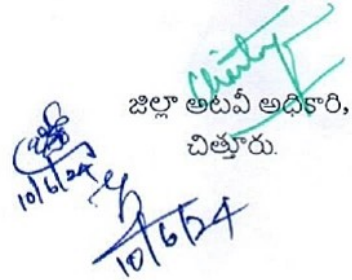 జిల్లా అటవీ అధికారి,
చిత్తూరు.
10/6/24
10/6/24